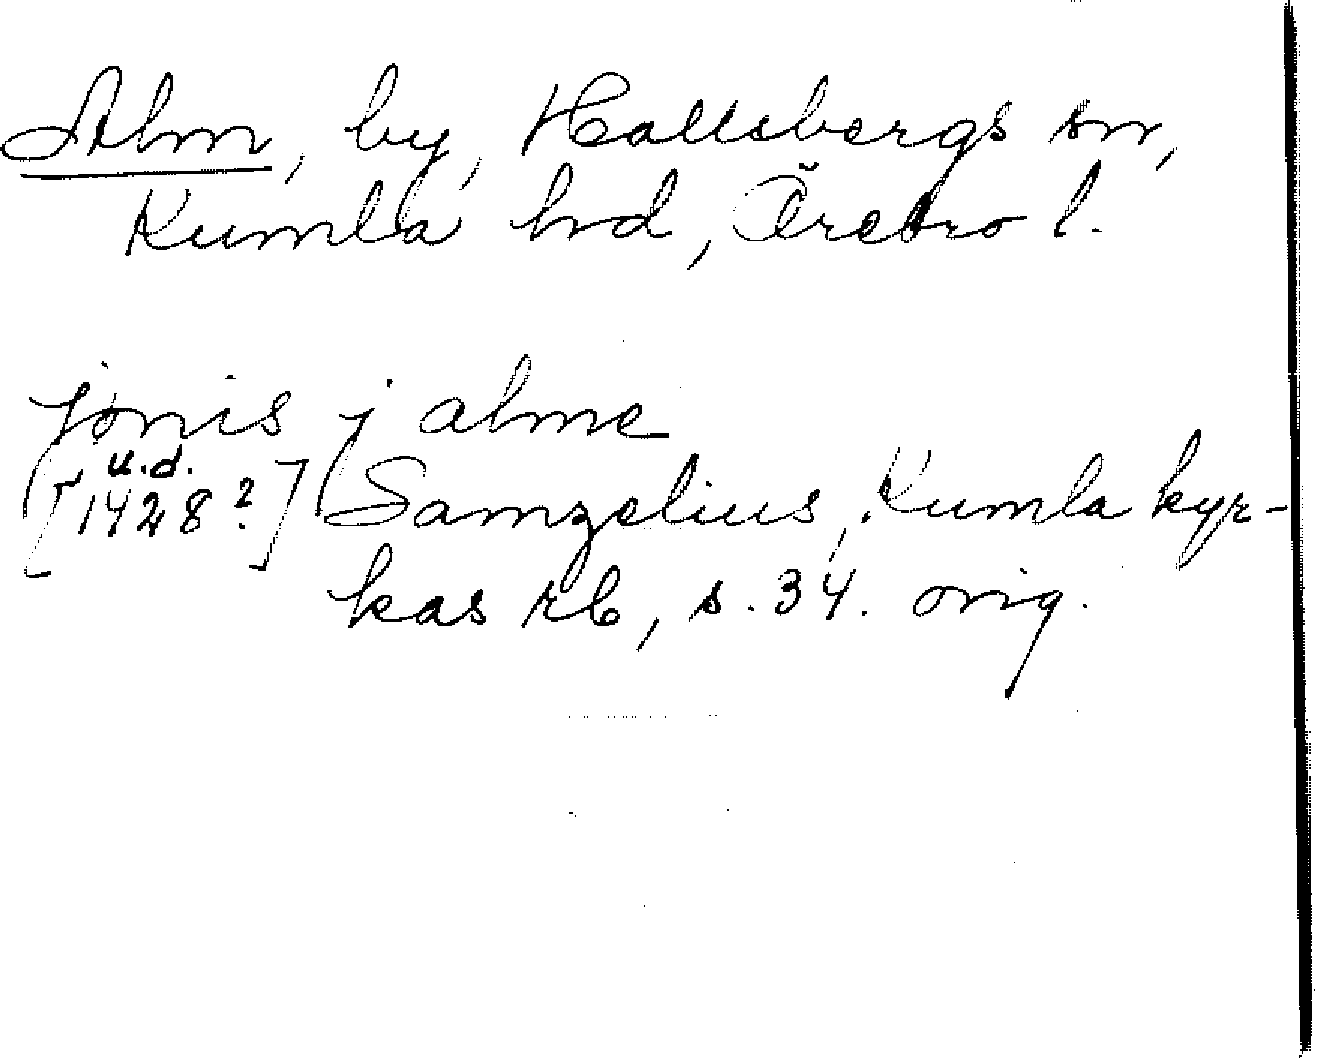 Alm, by, Hallsbergs sn,
Kumla hd, Örebro l.
jönis j alme
u.d.
[1428?] Samzelius, Kumla kyr-
kas rb, s. 34. orig.